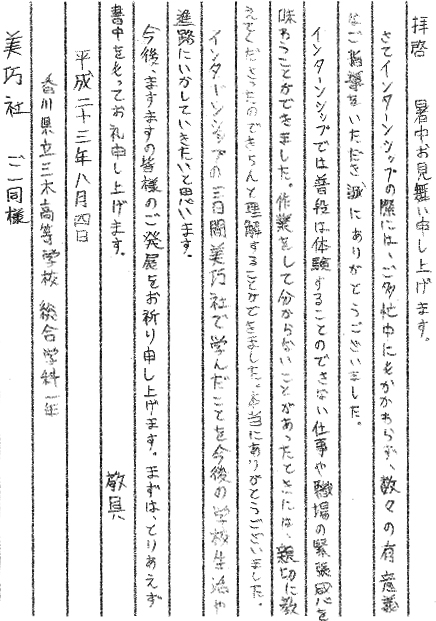 拝啓　暑中お見舞い申し上げます。
さてインターンシップの際には、ご多忙中にもかかわらず、数々の有意義
なご指導をいただき誠にありがとうございました。
インターンシップでは普段は体験することのできない仕事や職場の緊張感を
味わうことができました。作業をして分からないことがあったときには、親切に教
えてくださったのできちんと理解することができました。本当にありがとうございました。
インターンシップの三日間美巧社で学んだことを今後の学校生活や
進路にいかしていきたいと思います。
今後、ますますの皆様のご発展をお祈り申し上げます。まずは、とりあえず
書中をもってお礼申し上げます。
敬具
平成二十三年八月四日
香川県立三木高等学校　総合学科一年
美巧社　ご一同様